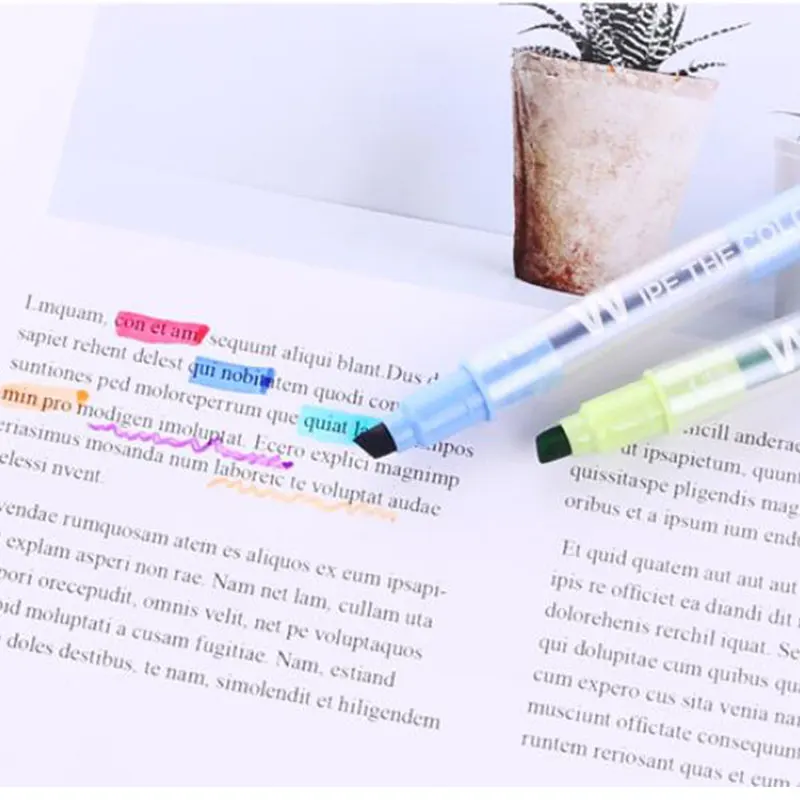 I.mquam, con et am, sequunt aliqui blant.Dus
sapiet rehent delest qui nobi tem quodi
suntiones ped moloreperrum que quiat
min pro modigen imoluptat. Ecero explici magnimp
eriasimus mosanda num laboreic te voluptat audae
elessi nvent.
vendae rumquosam atem es aliquos ex eum ipsapi-
explam asperi non rae. Nam net lam, cullam uta
pori orecepudit, omnis velit, net pe voluptaquos
pid moluptati a cusam fugitiae. Nam, estiand
doles destibus, te nam, simolendit et hiligendem
ncill anderae
ut ipsapietum, quunt
quissitaspe pligendis mag
oribus et a ipsum ium endu
Et quid quatem aut aut aut
ipis re officiet ea diandi dit
dolorehenis rerchil iquat. Se
qui dolupitae cum quibus qu
cum expero cus sita venia na
musciunt offictate consequunt
runtem reriosant quas et eum
WIPE THE COLO
W